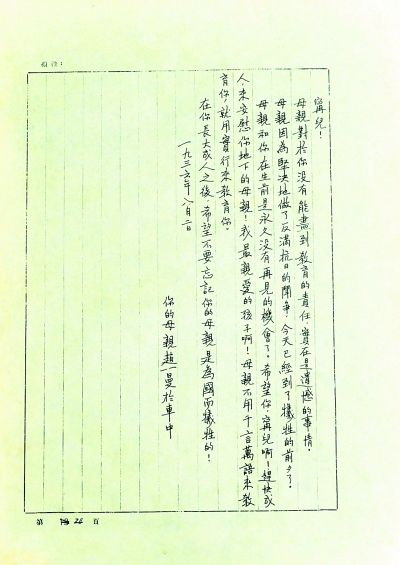 備注：
寗兒！
母親對於你没有能盡到教育的責任，實在是遺憾的事情。
母親因為堅决地做了反滿抗日的鬥争，今天已經到了犧牲的前夕了。
母親和你在生前是永久没有再見的機會了。希望你，寗兒啊！趕快成
人，来安慰你地下的母親！我最親愛的孩子啊！母親不用千言萬語来教
育你，就用實行来教育你。
在你長大成人之後，希望不要忘記你的母親是為國而犧牲的！
一九三六年八月二日
你的母親趙一曼於車中
第
月